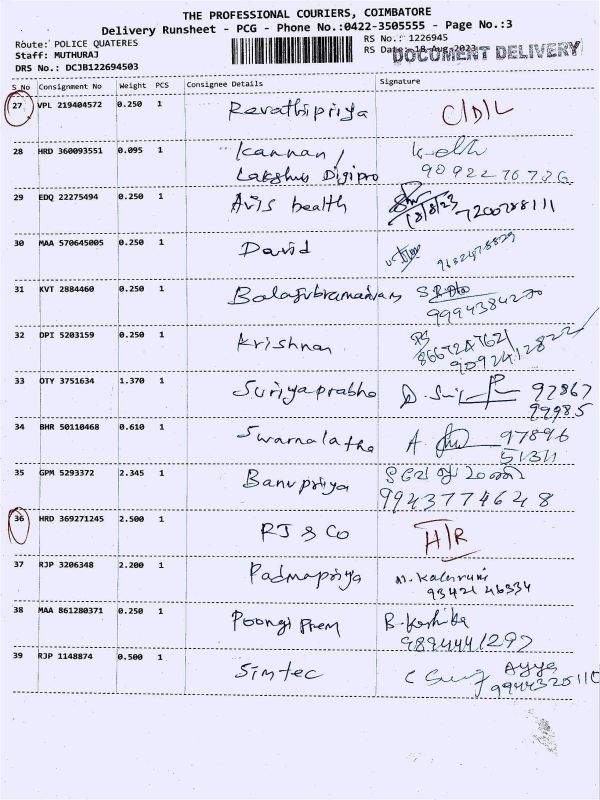 THE PROFESSIONAL COURIERS, COIMBATORE
Delivery Runsheet - PCG - Phone No.:0422-3505555 - Page No.:3
Route: POLICE QUATERES
RS No.: 1226945
Staff: MUTHURAJ
RS Date: 18-Aug-2023
DOCUMENT DELIVERY
DRS No.: DCJB122694503
S_No Consignment No Weight PCS Consignee Details Signature
27 VPL 219404572 0.250 1 Revathipriya C/D/L
28 HRD 360093551 0.095 1 Kannan /
Lakshus Digipro
29 EDQ 22275494 0.250 1 Avis health
18/8/23 7200788111
30 MAA 570645005 0.250 1 David
31 KVT 2884460 0.250 1 Balasubramaniam
9994384270
32 DPI 5203159 0.250 1 Krishnan
8667247621
9092412822
33 OTY 3751634 1.370 1 Suriyaprabha 97867
99985
34 BHR 50110468 0.610 1 Swarnalatha A. 97896
51311
35 GPM 5293372 2.345 1 Banupriya
9943774648
36 HRD 369271245 2.500 1 RJ & Co H/R
37 RJP 3206348 2.200 1 Padmapriya
93421 46334
38 MAA 861280371 0.250 1 Poongi Prem B.
9894441297
39 RJP 1148874 0.500 1 Simtec Ayya
9944320110